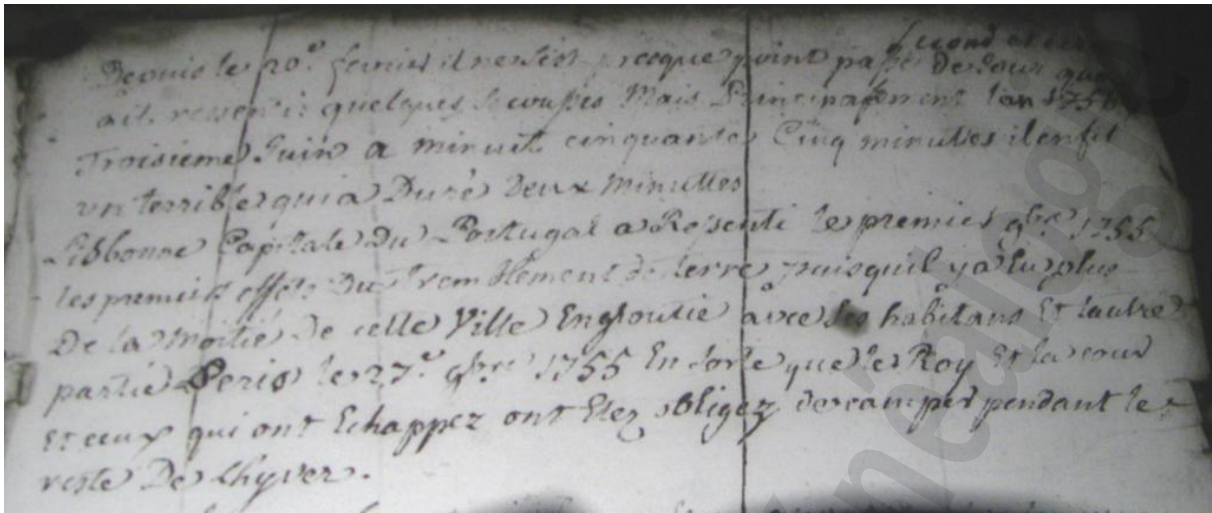 Depuis le 20.e fevrier il ne s'est presque point passé de Jour que
ait ressenti quelques Secousses Mais Principalement lan 1756
Troisieme Juin a minuit cinquante Cinq minutes il en fit
un terrible qui a Duré Deux Minuttes
Lisbonne Capitale Du Portugal a Ressenti le premier 9bre 1755
les premiers effets Du Tremblement de terre puisquil ya Eu plus
De la Moitié De celle Ville Engloutie avec Ses habitans Et lautre
partie Peris le 27.e 9bre 1755 En sorte que le Roy Et la cour
Et ceux qui ont Echappez ont Etez obligez de camper pendant le
reste De Lhyver.